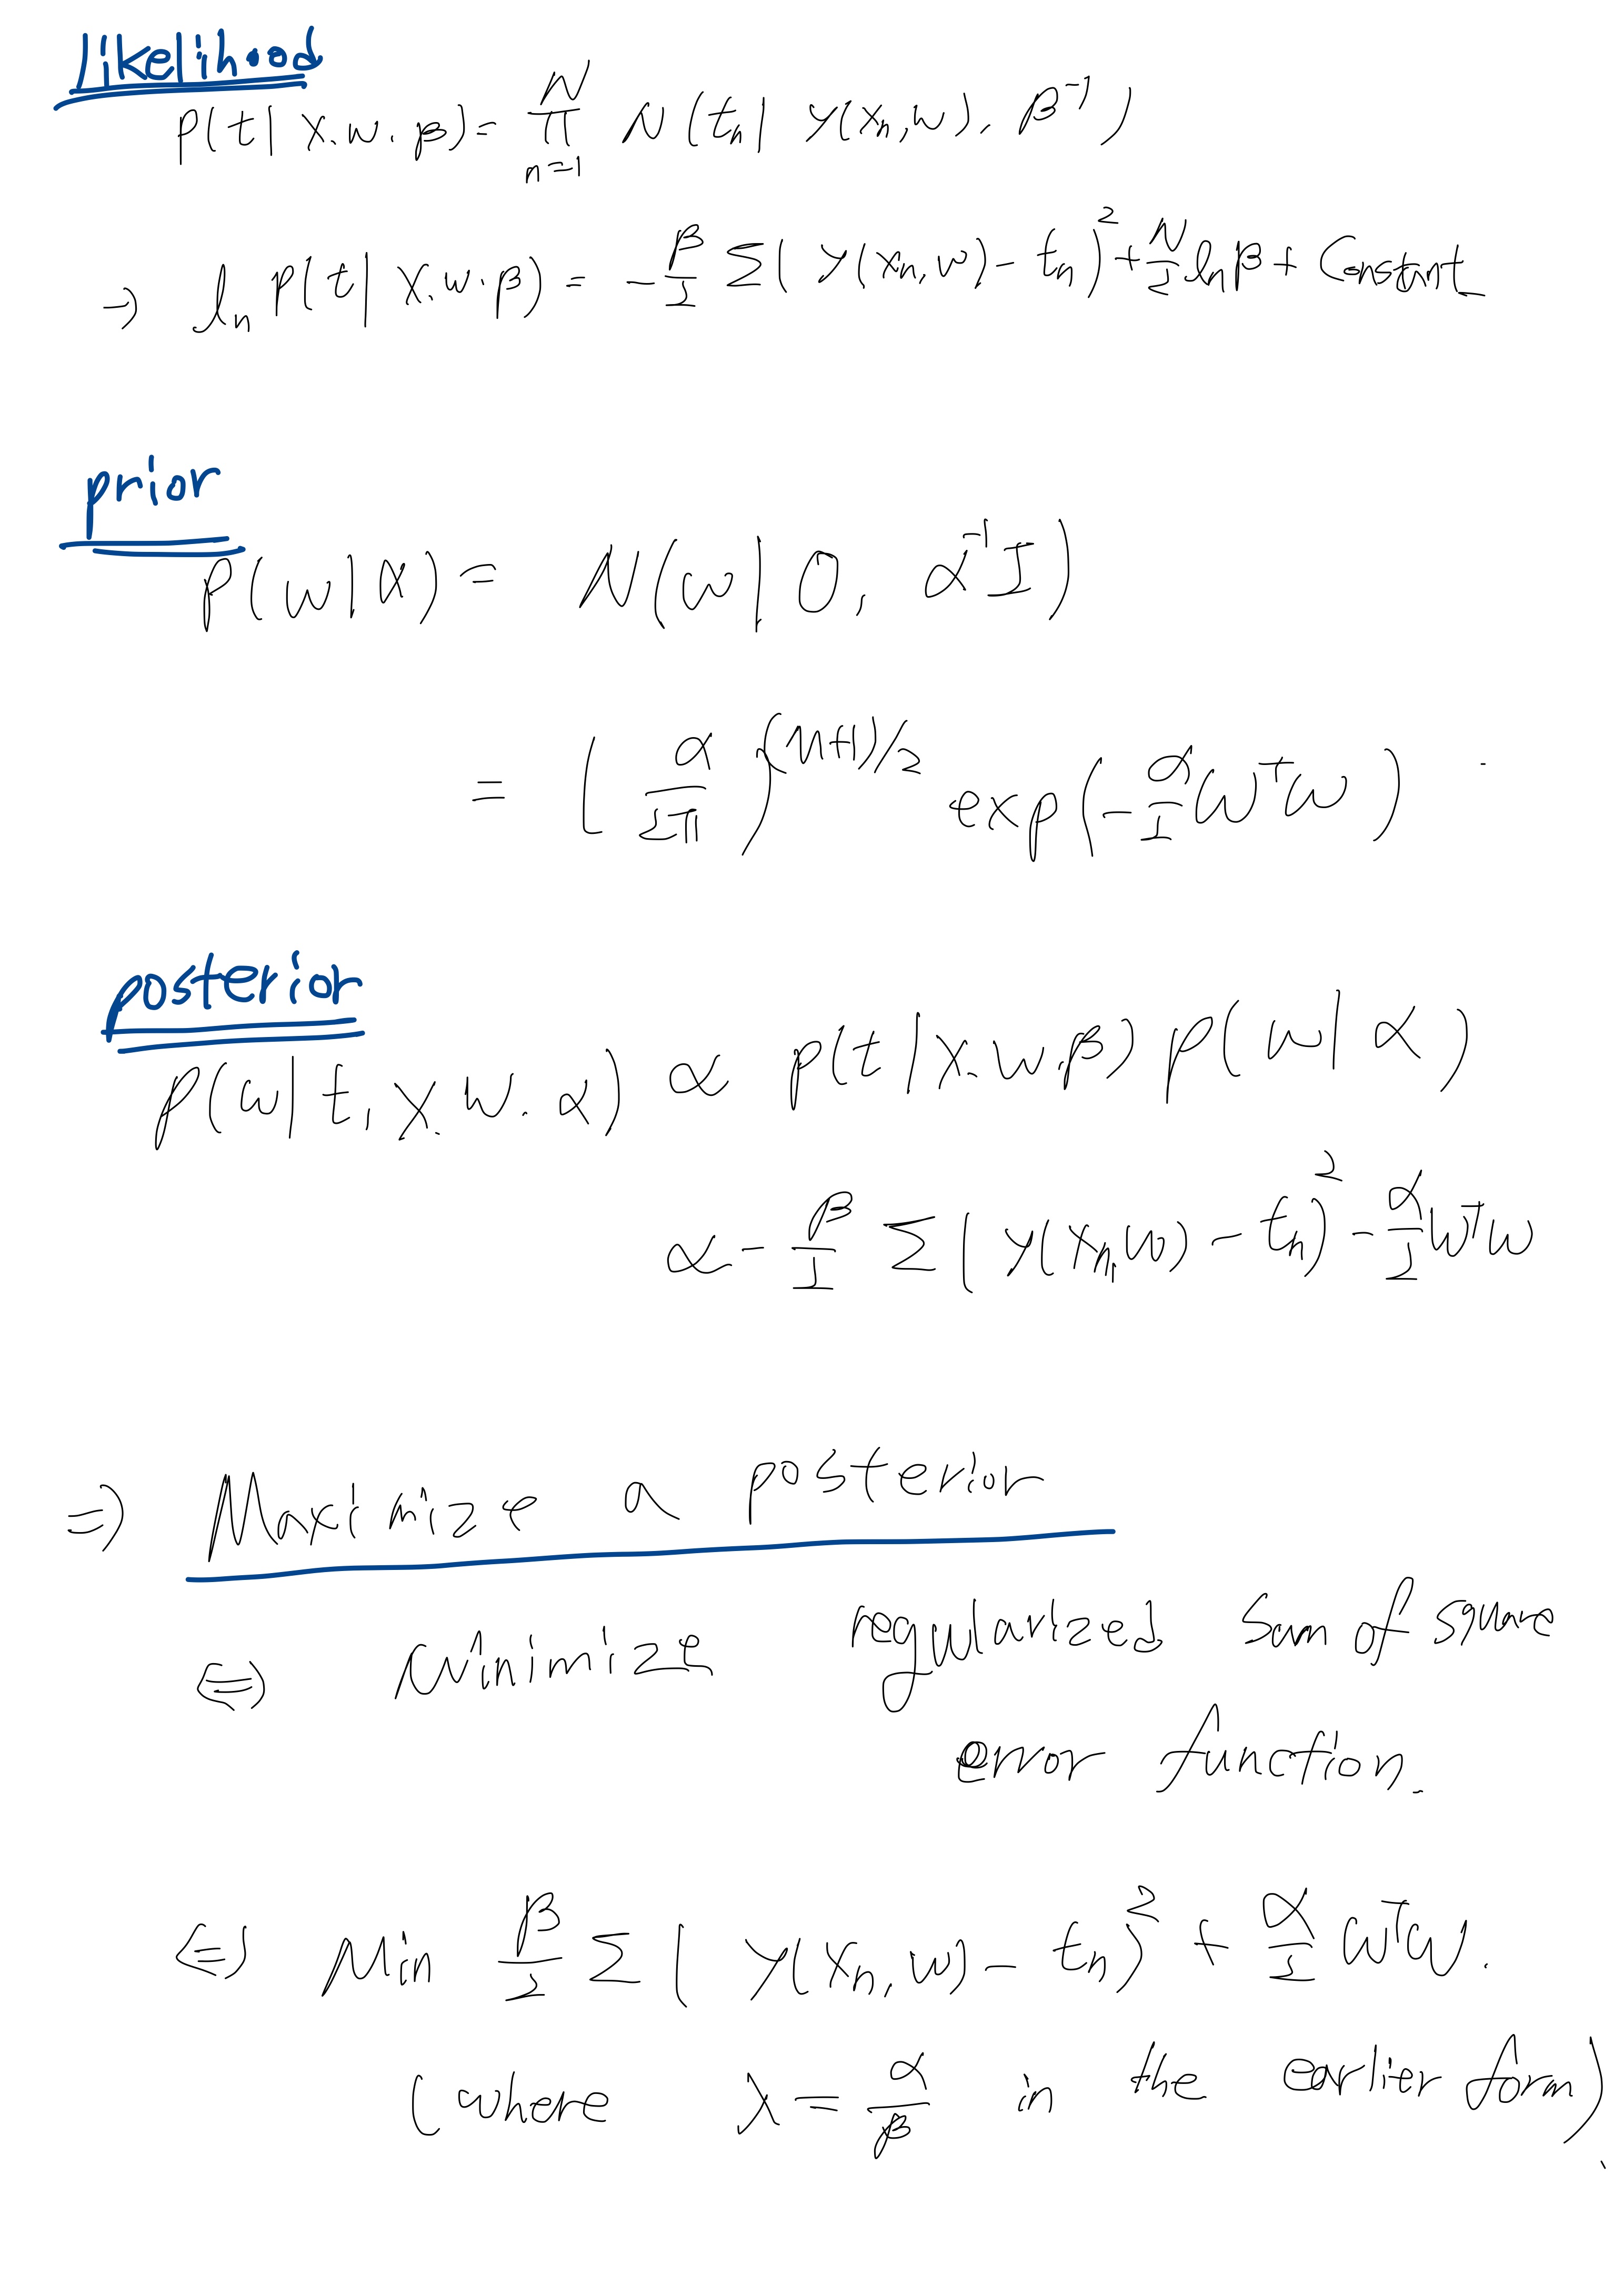 likelihood
p(t| x.w.β)= ∏_{n=1}^{N} N(tn| y(xn,w), β⁻¹)
→ ln p(t| x.w.β) = -β/2 Σ( y(xn,w)- tn)² + N/2 lnβ + Constant
prior
p(w|α) = N(w| 0, α⁻¹I)
= (α/2π)^{(M+1)/2} exp(-α/2 wᵀw)
posterior
p(w| t, x. w. α) ∝ p(t|x.w.β) p(w|α)
∝ -β/2 Σ( y(xn,w) - tn)² - α/2 wᵀw
⇒ Maximize a posterior
⇔ Minimize regularized sum of square
error function.
⇔ Min β/2 Σ( y(xn,w)- tn)² + α/2 wᵀw.
(where λ = α/β in the earlier form).